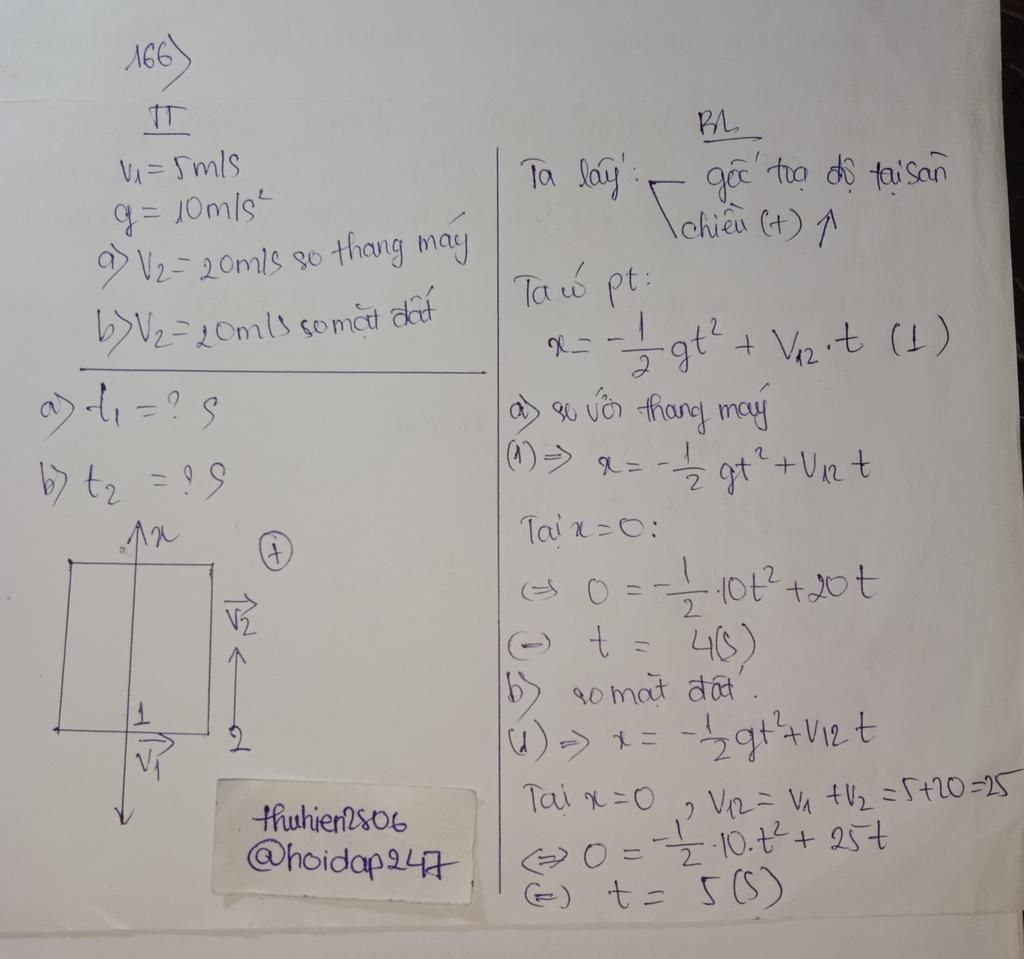 166)
TT
v₁ = 5m/s
g = 10m/s²
a) V₂ = 20m/s so thang máy
b) V₂ = 20m/s so mặt đất
a) t₁ = ? s
b) t₂ = ? s
x
+
V₂
1
2
V₁
thuhien2806
@hoidap247
BL
Ta lấy: gốc toạ độ tại sàn
chiều (+) ↑
Ta có pt:
x = -1/2 gt² + V₁₂.t (1)
a) so với thang máy
(1) => x = -1/2 gt² + V₁₂ t
Tại x = 0:
<=> 0 = -1/2 .10t² + 20t
(=) t = 4(s)
b) so mặt đất.
(1) => x = -1/2 gt² + V₁₂ t
Tại x = 0 , V₁₂ = V₁ + V₂ = 5+20 = 25
<=> 0 = -1/2 .10.t² + 25t
(=) t = 5(s)